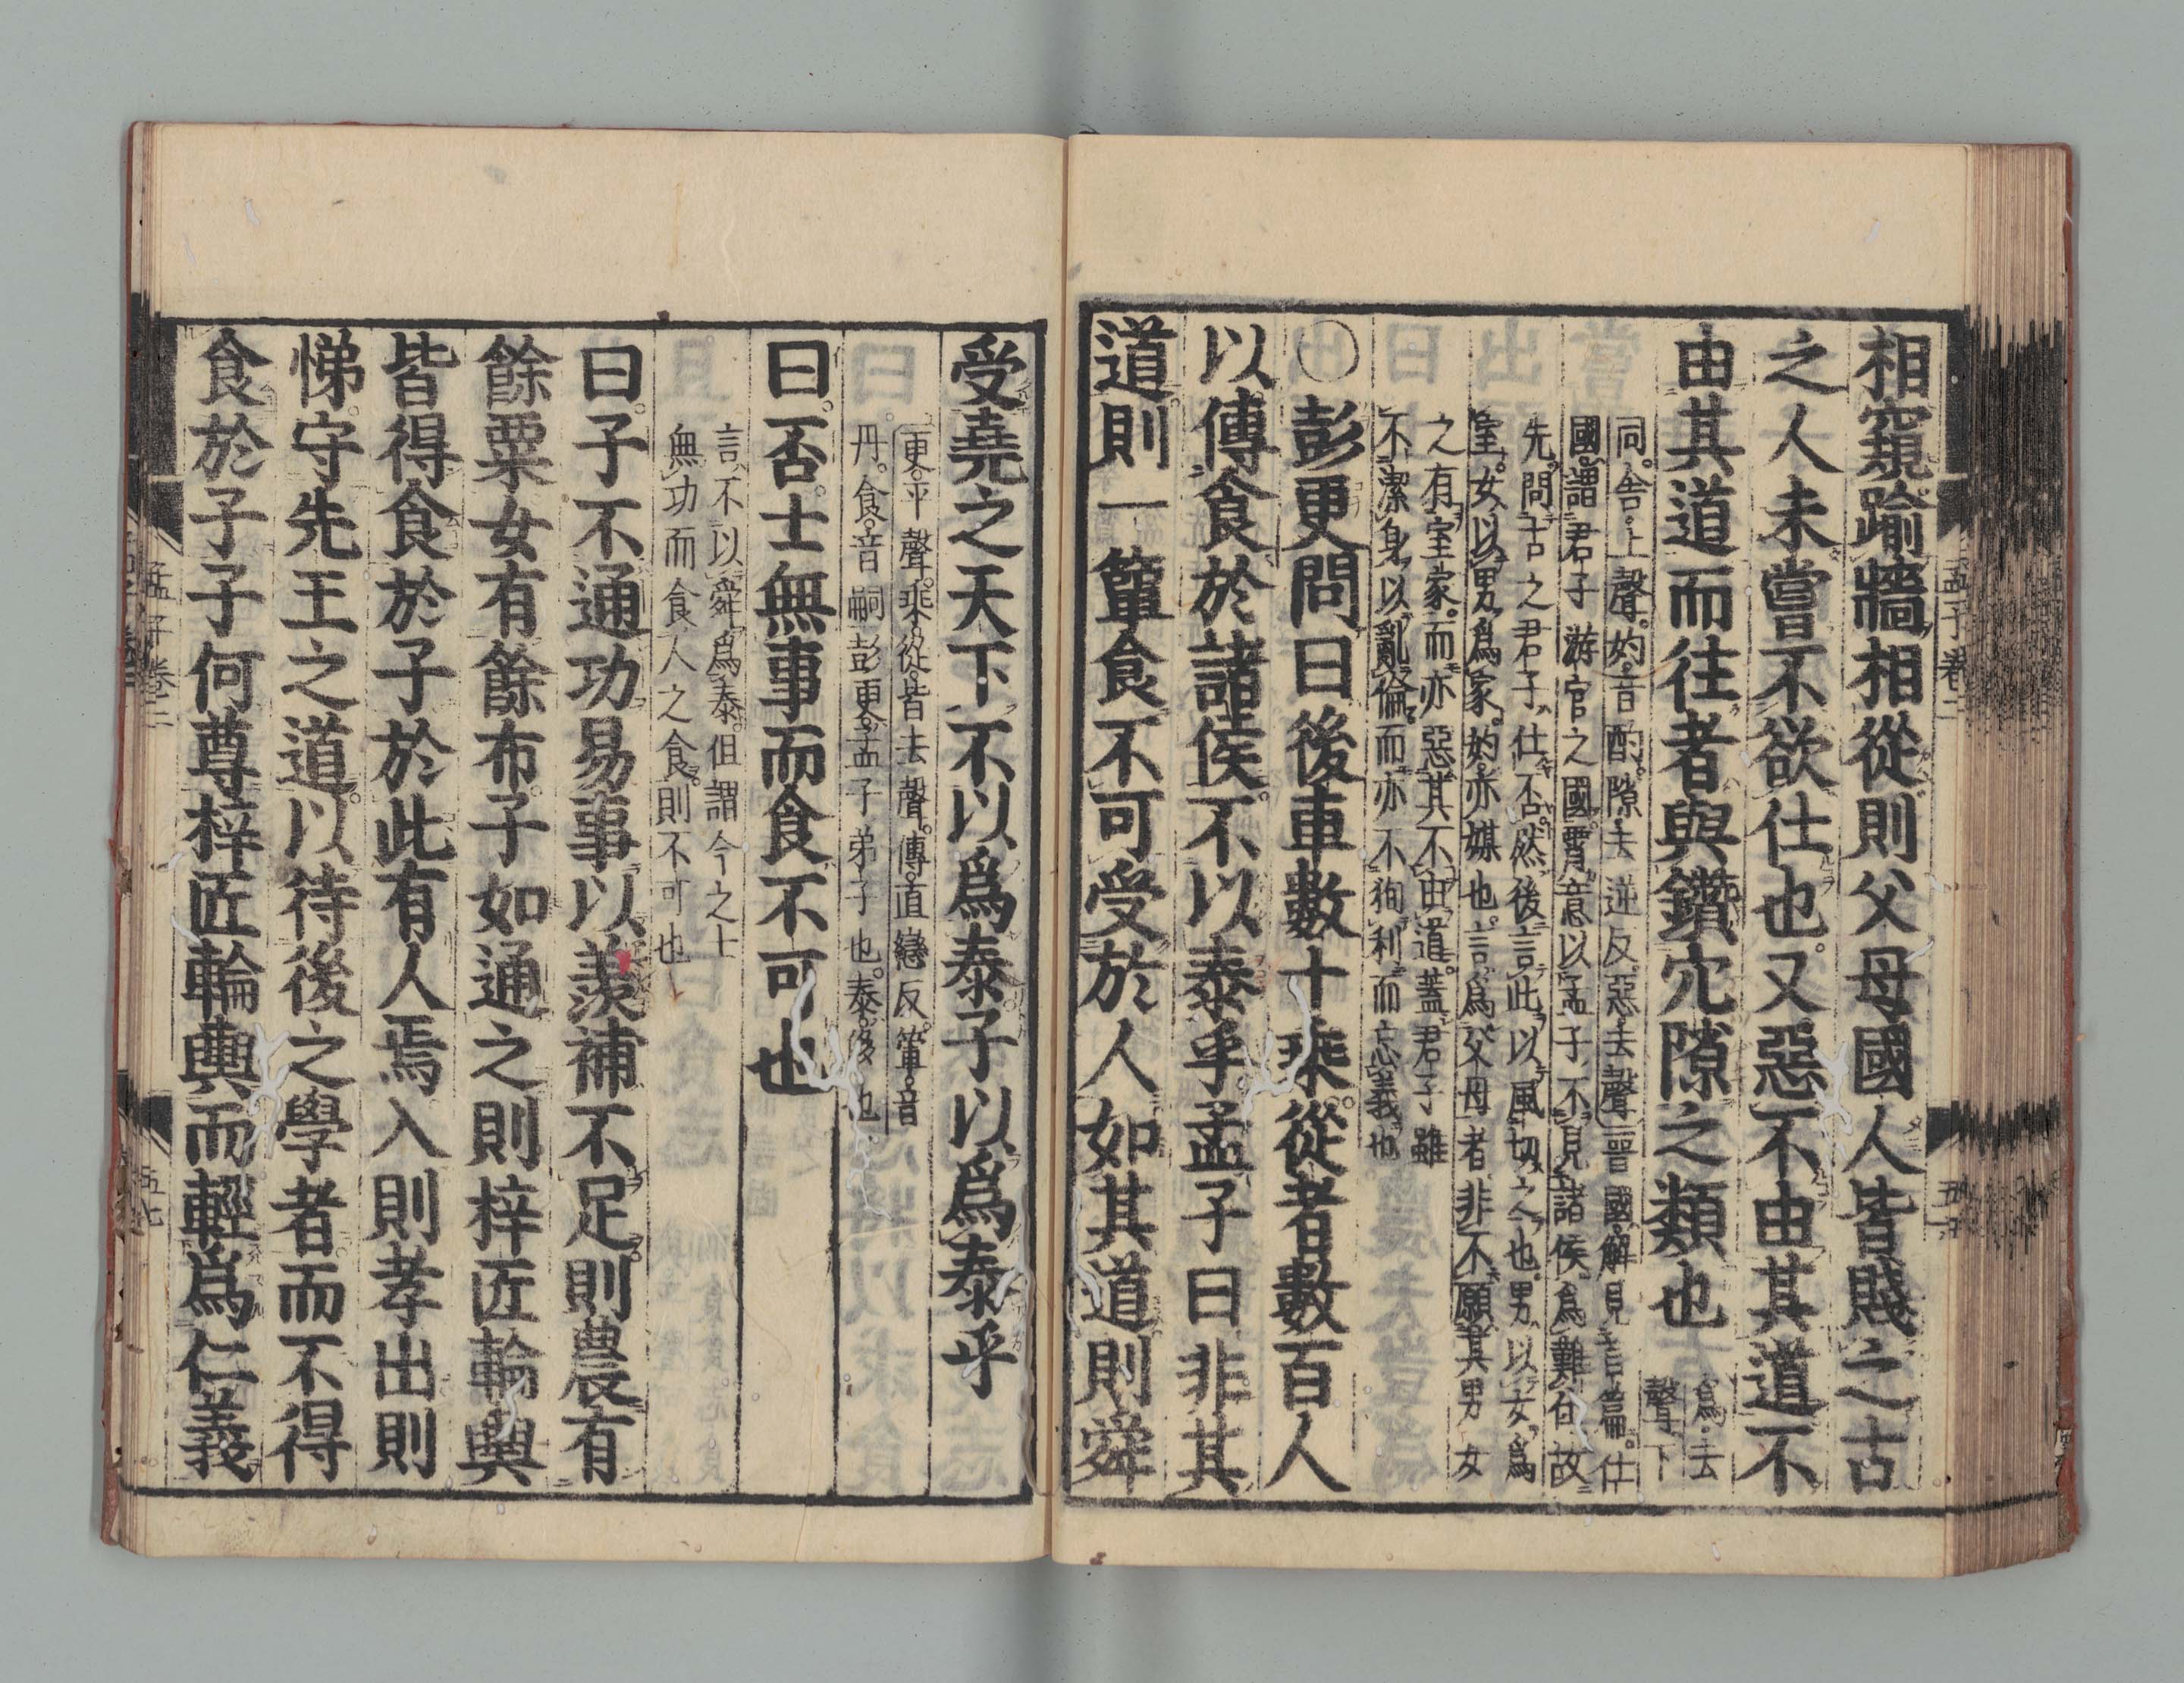 相窺踰牆相從則父母國人皆賤之古
之人未嘗不欲仕也又惡不由其道不
由其道而往者與鑽穴隙之類也
爲去
聲下
同舍上聲妁音酌隙去逆反惡去聲晉國解見首篇仕
國謂君子游宦之國霄意以孟子不見諸侯爲難仕故
先問古之君子仕否然後言此以風切之也男以女爲
室女以男爲家妁亦媒也言爲父母者非不願其男女
之有室家而亦惡其不由道蓋君子雖
不潔身以亂倫而亦不徇利而忘義也
○彭更問曰後車數十乘從者數百人
以傳食於諸侯不以泰乎孟子曰非其
道則一簞食不可受於人如其道則舜
受堯之天下不以爲泰子以爲泰乎
更平聲乘從皆去聲傳直戀反簞音
丹食音嗣彭更孟子弟子也泰侈也
曰否士無事而食不可也
言不以舜爲泰但謂今之士
無功而食人之食則不可也
曰子不通功易事以羨補不足則農有
餘粟女有餘布子如通之則梓匠輪輿
皆得食於子於此有人焉入則孝出則
悌守先王之道以待後之學者而不得
食於子子何尊梓匠輪輿而輕爲仁義
孟子卷二
五七